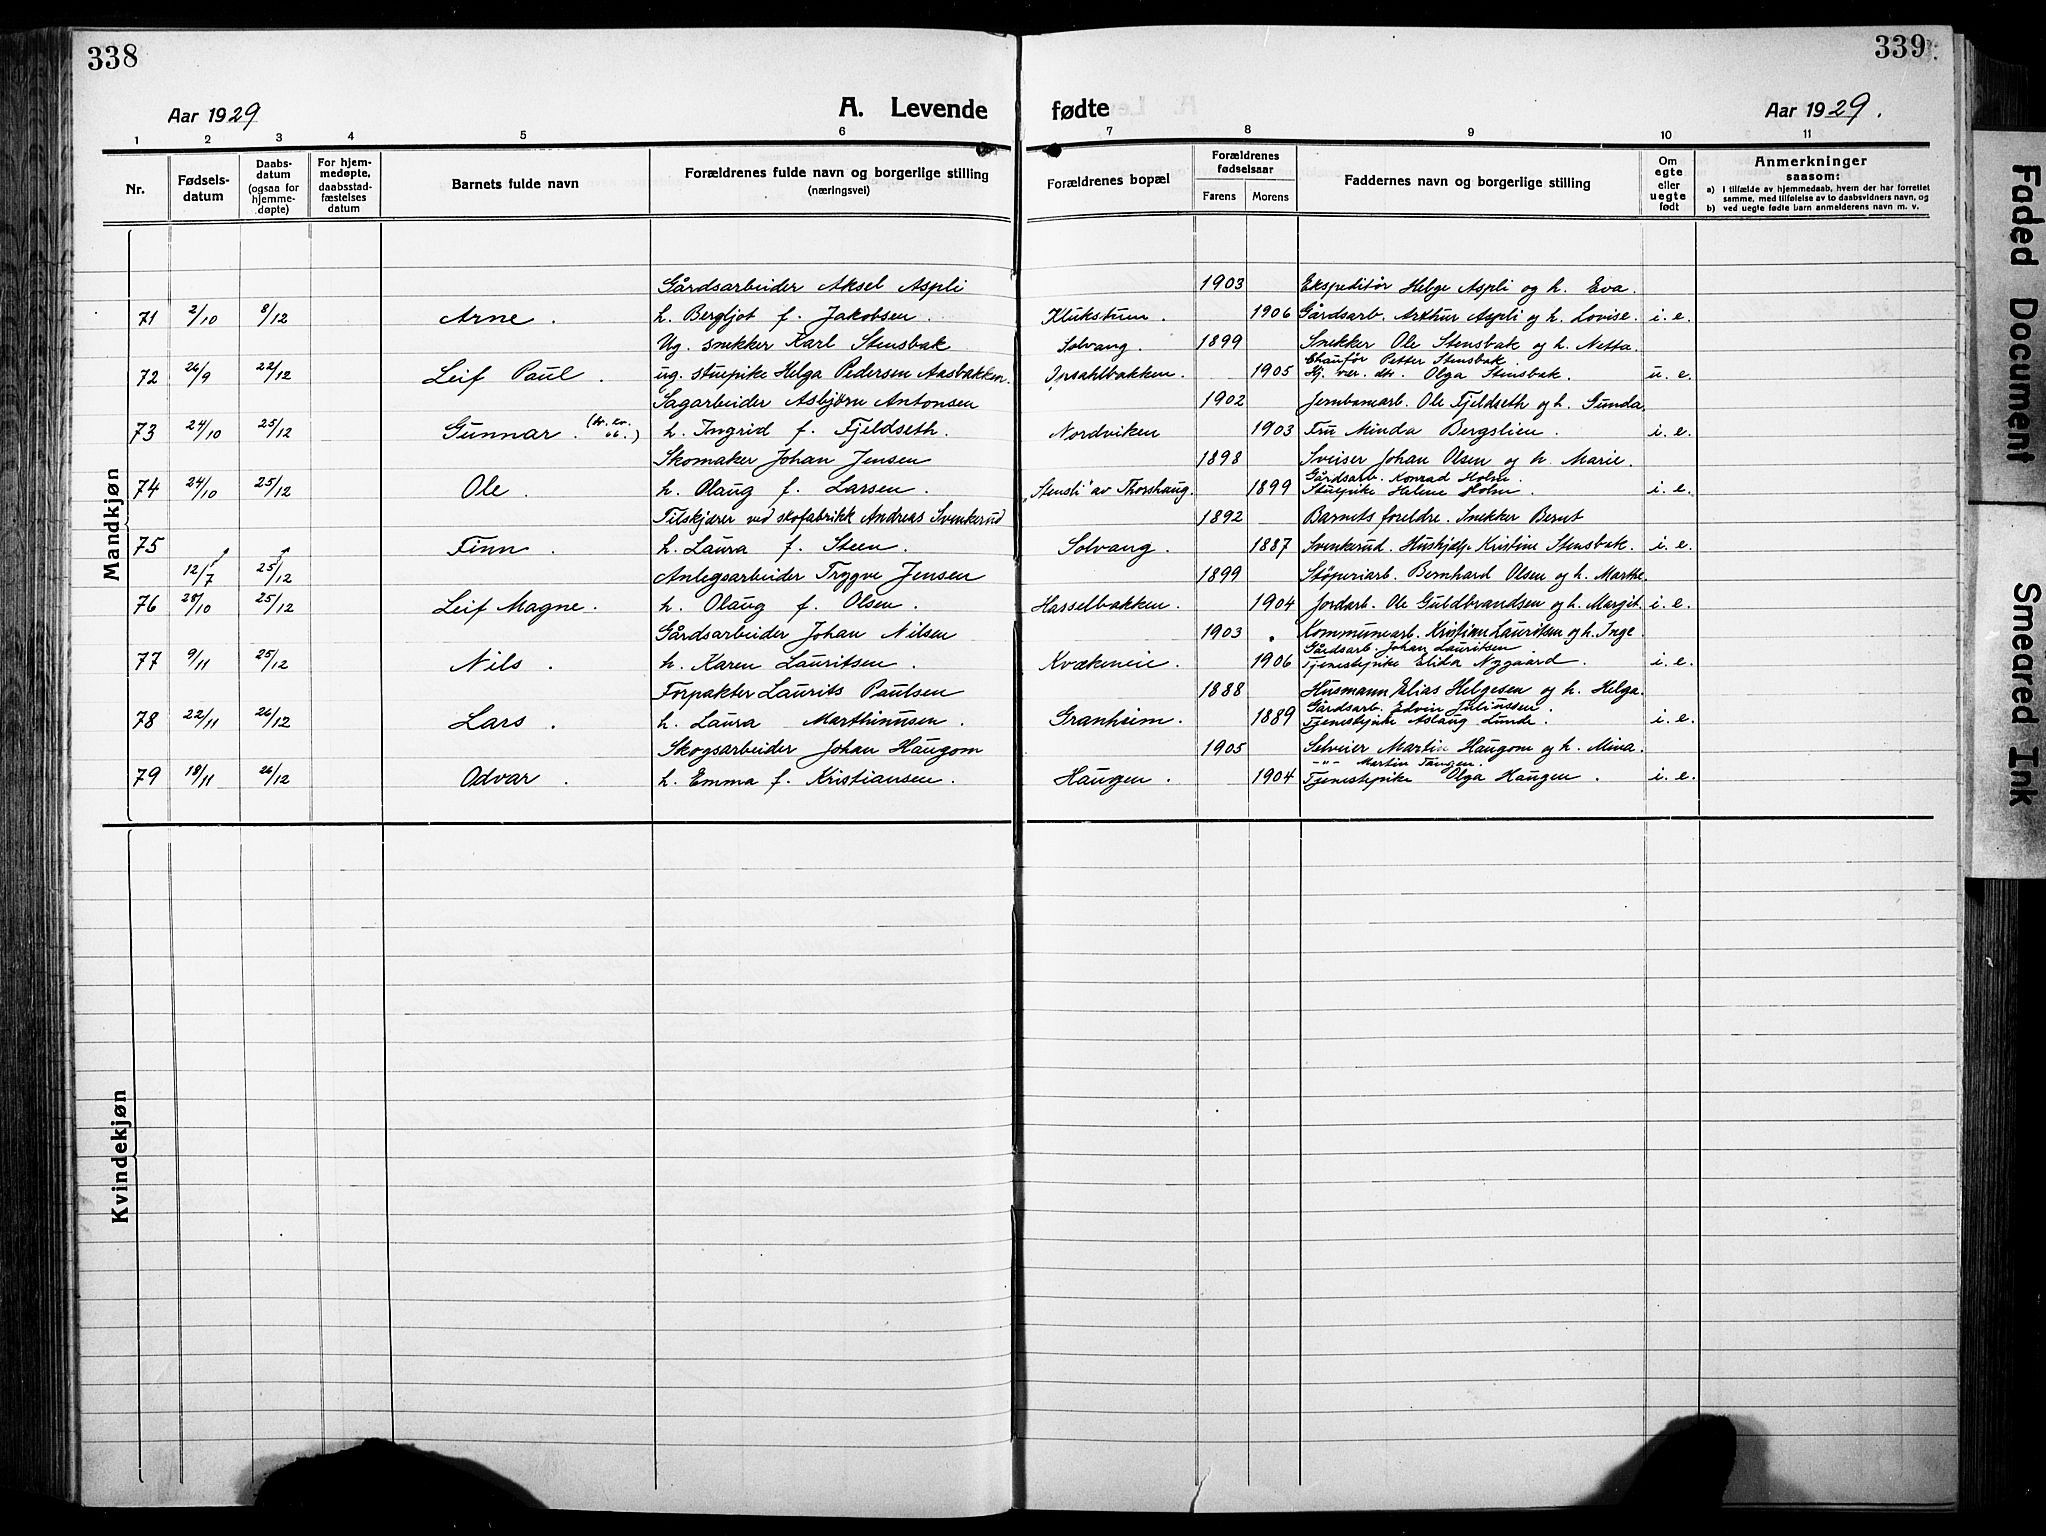 338
339
Aar 1929
A. Levende
fødte
Aar 1929.
1 2 3 4 5 6 7 8 9 10 11
Nr.
Fødsels-
datum
Daabs-
datum
(ogsaa for
hjemme-
døpte)
For hjem-
medøpte,
daabsstad-
fæstelses
datum
Barnets fulde navn
Forældrenes fulde navn og borgerlige stilling
(næringsvei)
Forældrenes bopæl
Forældrenes
fødselsaar
Farens Morens
Faddernes navn og borgerlige stilling
Om
egte
eller
uegte
født
Anmerkninger
saasom:
a) I tilfælde av hjemmedaab, hvem der har forrettet
samme, med tilføielse av to daabsvidners navn, og
b) ved uegte fødte barn anmelderens navn m. v.
Mandkjøn
Gårdsarbeider Aksel Aspli 1903 Ekspeditör Helge Aspli og h. Eva.
71 2/10 8/12 Arne. h. Bergljot f. Jakobsen. Klukstuen. 1906 Gårdsarb. Arthur Aspli og h. Lovise. i. e.
Ug. snekker Karl Stensbak Solvang. 1899 Snekker Ole Stensbak og h. Netta.
Chauför Petter Stensbak.
72 26/9 22/12 Leif Paul. ug. stuepike Helga Pedersen Aasbakken. Ipsahlbakken. 1905 Hj. vær. dtr. Olga Stensbak. u. e.
Sagarbeider Asbjörn Antonsen 1902 Jernbanearb. Ole Fjeldseth og h. Gunda.
73 24/10 25/12 Gunnar. h. Ingrid f. Fjeldseth. Nordviken 1903 Fru Minda Bergslien. i. e.
Skomaker Johan Jensen 1898 Sveiser Johan Olsen og h. Marie.
Gårdsarb. Konrad Holm.
74 24/10 25/12 Ole. h. Olaug f. Larsen. "Stensli" av Thorshaug. 1899 Stuepike Helene Holm. i. e.
Tilskjærer ved skofabrikk Andreas Svenkerud 1892 Barnets foreldre. Snekker Bernt
75 Finn. h. Laura f. Steen. Solvang. 1887 Svenkerud. Hushjelp Kristine Stensbak. i. e.
12/7 25/12 Anlegsarbeider Trygve Jensen 1899 Støperiarb. Bernhard Olsen og h. Marthe.
76 28/10 25/12 Leif Magne. h. Olaug f. Olsen. Hasselbakken. 1904 Jordarb. Ole Guldbrandsen og h. Margit. i. e.
Gårdsarbeider Johan Nilsen 1903 Kommunearb. Kristian Lauritsen og h. Inge.
Gårdsarb. Johan Lauritsen
77 9/11 25/12 Nils. h. Karen Lauritsen. Kvækeneie. 1906 Tjenestepike Elida Nygaard. i. e.
Forpakter Laurits Paulsen 1888 Husmann Elias Helgesen og h. Helga.
Gårdsarb. Edvin Juliussen.
78 22/11 26/12 Lars. h. Laura Marthinusen. Granheim. 1889 Tjenestepike Aslaug Lunde. i. e.
Skogsarbeider Johan Haugom 1905 Selveier Martin Haugom og h. Mina.
-"- Martin Tangen.
79 18/11 26/12 Odvar. h. Emma f. Kristiansen. Haugen. 1904 Tjenestepike Olga Haugen. i. e.
Kvindekjøn
Faded Document
Smeared Ink